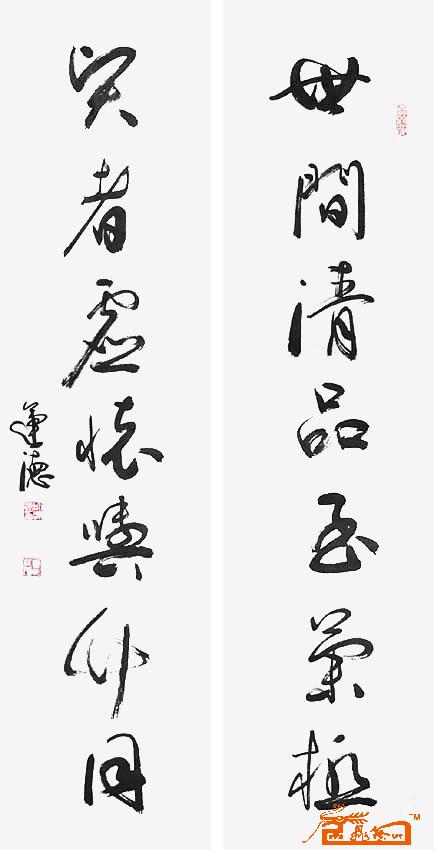 世間清品至蘭極
賢者虛懷與竹同
蓮德